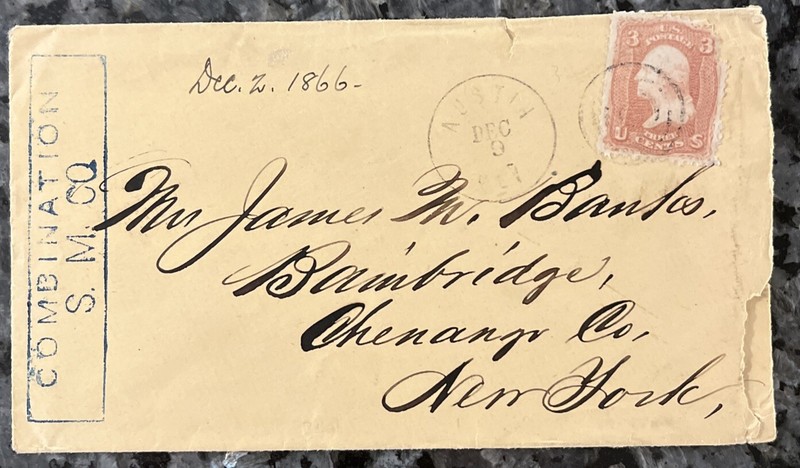 COMBINATION
S. M. CO.
Dec. 2. 1866-
AUSTIN
DEC
9
3 U.S. 3
POSTAGE
U THREE S
CENTS
Mr James M. Banks,
Bainbridge,
Chenango Co,
New York,